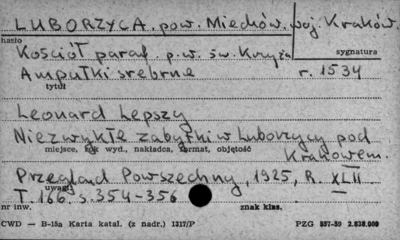 LUBORZYCA. pow. Miechów. woj. Kraków.
hasło
Kościół paraf. p.w. św. Krzyża
sygnatura
Ampułki srebrne r. 1534
tytuł
Leonard Lepszy
Niezwykłe zabytki w Luborzycy pod
miejsce, rok wyd., nakładca, format, objętość
Krakowem.
Przegląd Powszechny, 1925, R. XLII
uwagi
T. 166. s. 354-356
nr inw.
znak klas.
CWD — B-15a Karta katal. (z nadr.) 1317/P
PZG 857-59 2.838.000